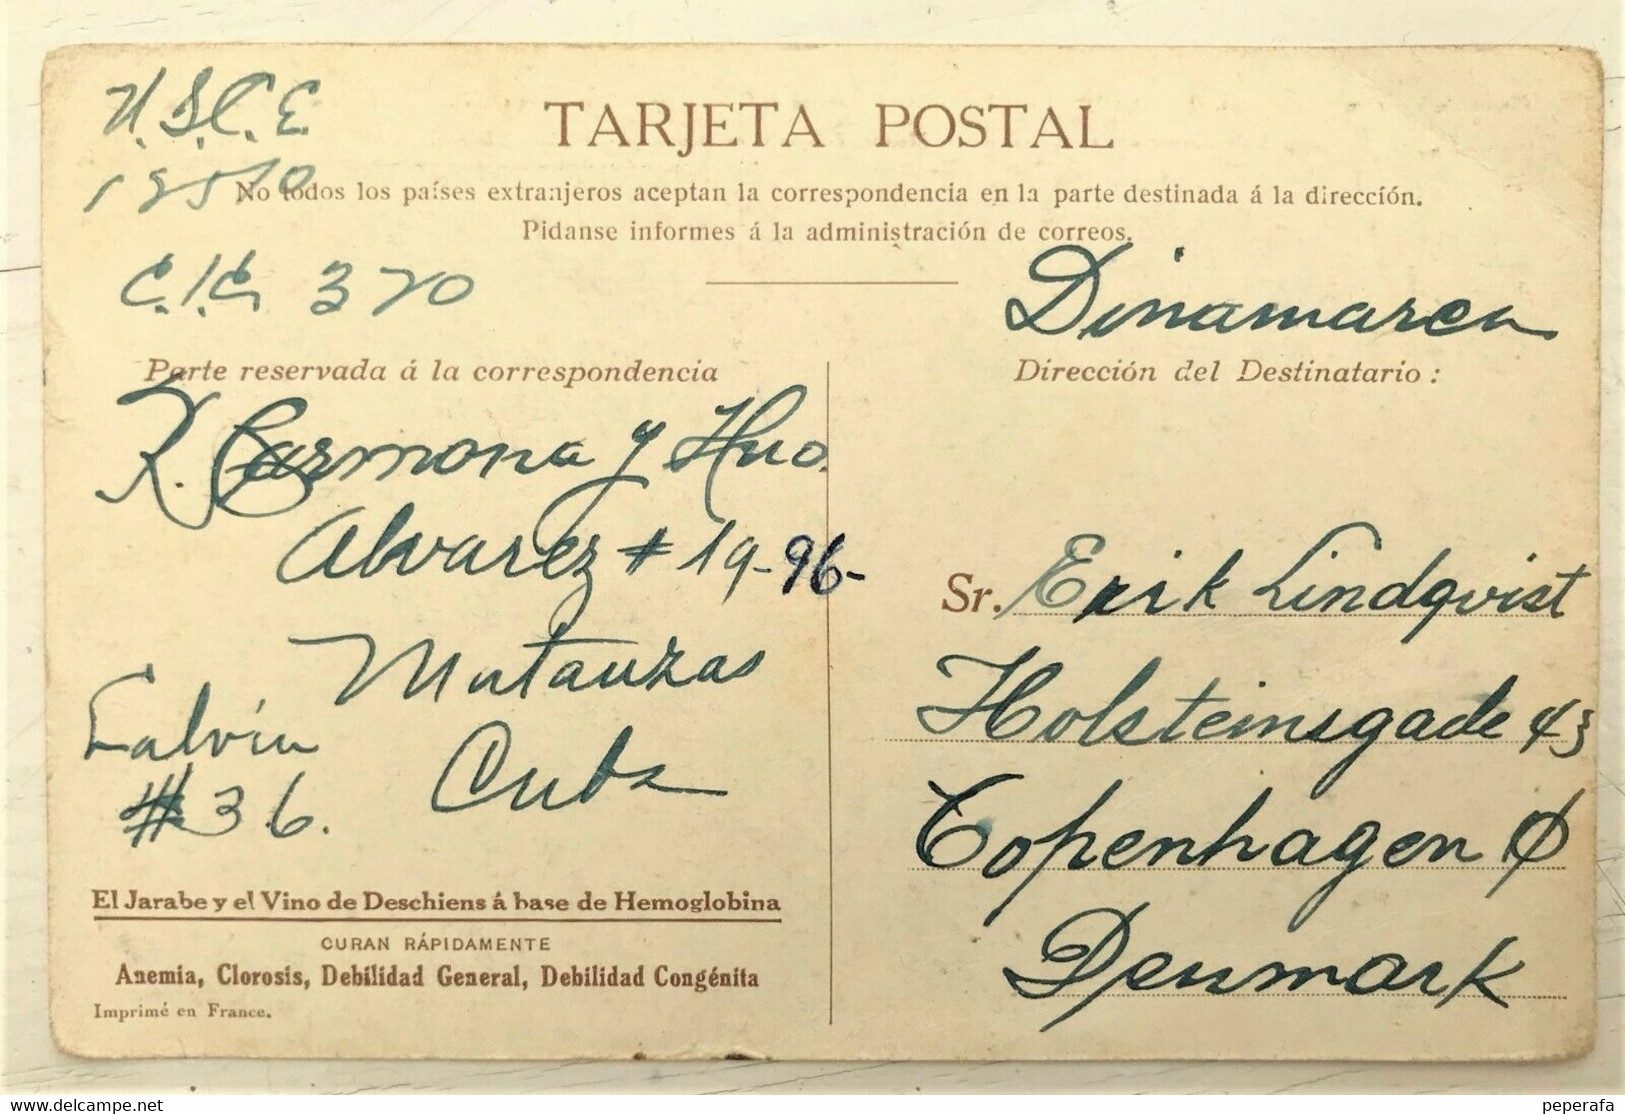 U.S.C.E.
TARJETA POSTAL
No todos los países extranjeros aceptan la correspondencia en la parte destinada á la dirección.
Pidanse informes á la administración de correos.
C.I.C. 370
Dinamarca
Parte reservada á la correspondencia
K. Carmona y Hno.
Alvarez # 19-96-
Matanzas
Cuba
Galvín
#36.
Dirección del Destinatario :
Sr. Erik Lindqvist
Holsteinsgade 43
Copenhagen Ø
Denmark
El Jarabe y el Vino de Deschiens á base de Hemoglobina
CURAN RÁPIDAMENTE
Anemia, Clorosis, Debilidad General, Debilidad Congénita
Imprimé en France.
www.delcampe.net
peperafa